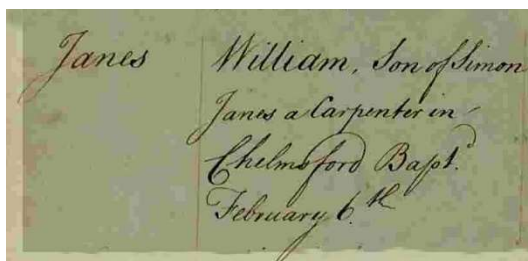 Janes
William, Son of Simon
Janes a Carpenter in
Chelmsford Bapt.d
February 6.th